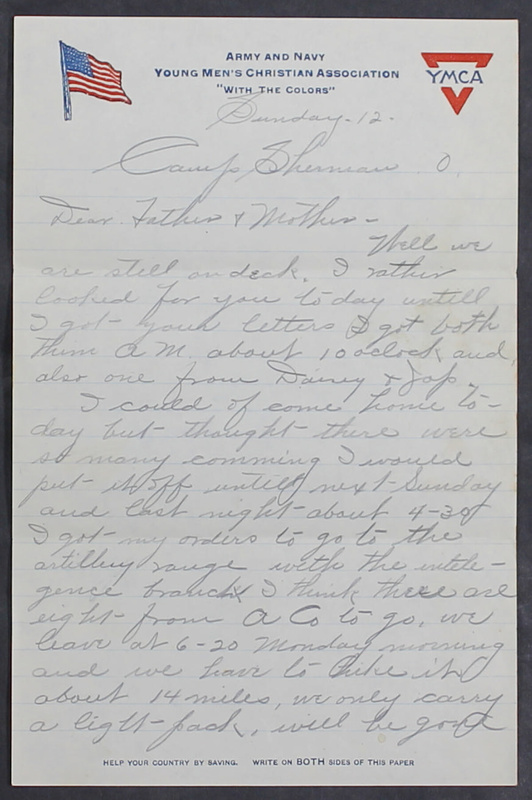 ARMY AND NAVY
YOUNG MEN'S CHRISTIAN ASSOCIATION
"WITH THE COLORS"
YMCA
Sunday-12-
Camp Sherman O.
Dear Father & Mother-
Well we
are still on deck. I rather
looked for you today untill
I got your letters I got both
them A.M. about 10 oclock and
also one from & Jap.
I could of come home to-
day but thought there were
so many comming I would
put it off untill next Sunday
and last night about 4-30
I got my orders to go to the
artillery range with the intele-
gence branch I think there are
eight from A Co to go, we
leave at 6-20 Monday morning
and we have to hike it
about 14 miles, we only carry
a light pack, will be gone
HELP YOUR COUNTRY BY SAVING. WRITE ON BOTH SIDES OF THIS PAPER